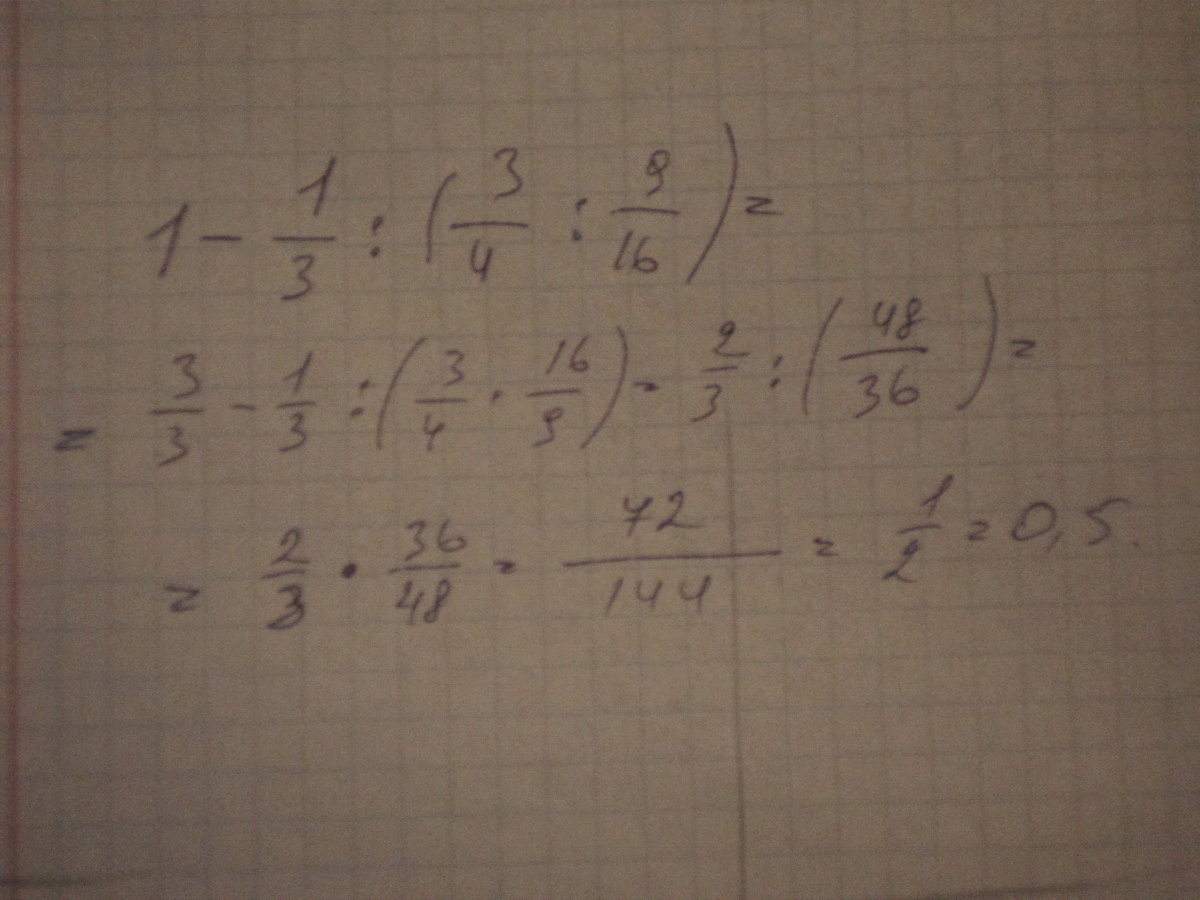 1 - 1/3 : (3/4 : 9/16) =
= 3/3 - 1/3 : (3/4 · 16/9) = 2/3 : (48/36) =
= 2/3 · 36/48 = 72/144 = 1/2 = 0,5.